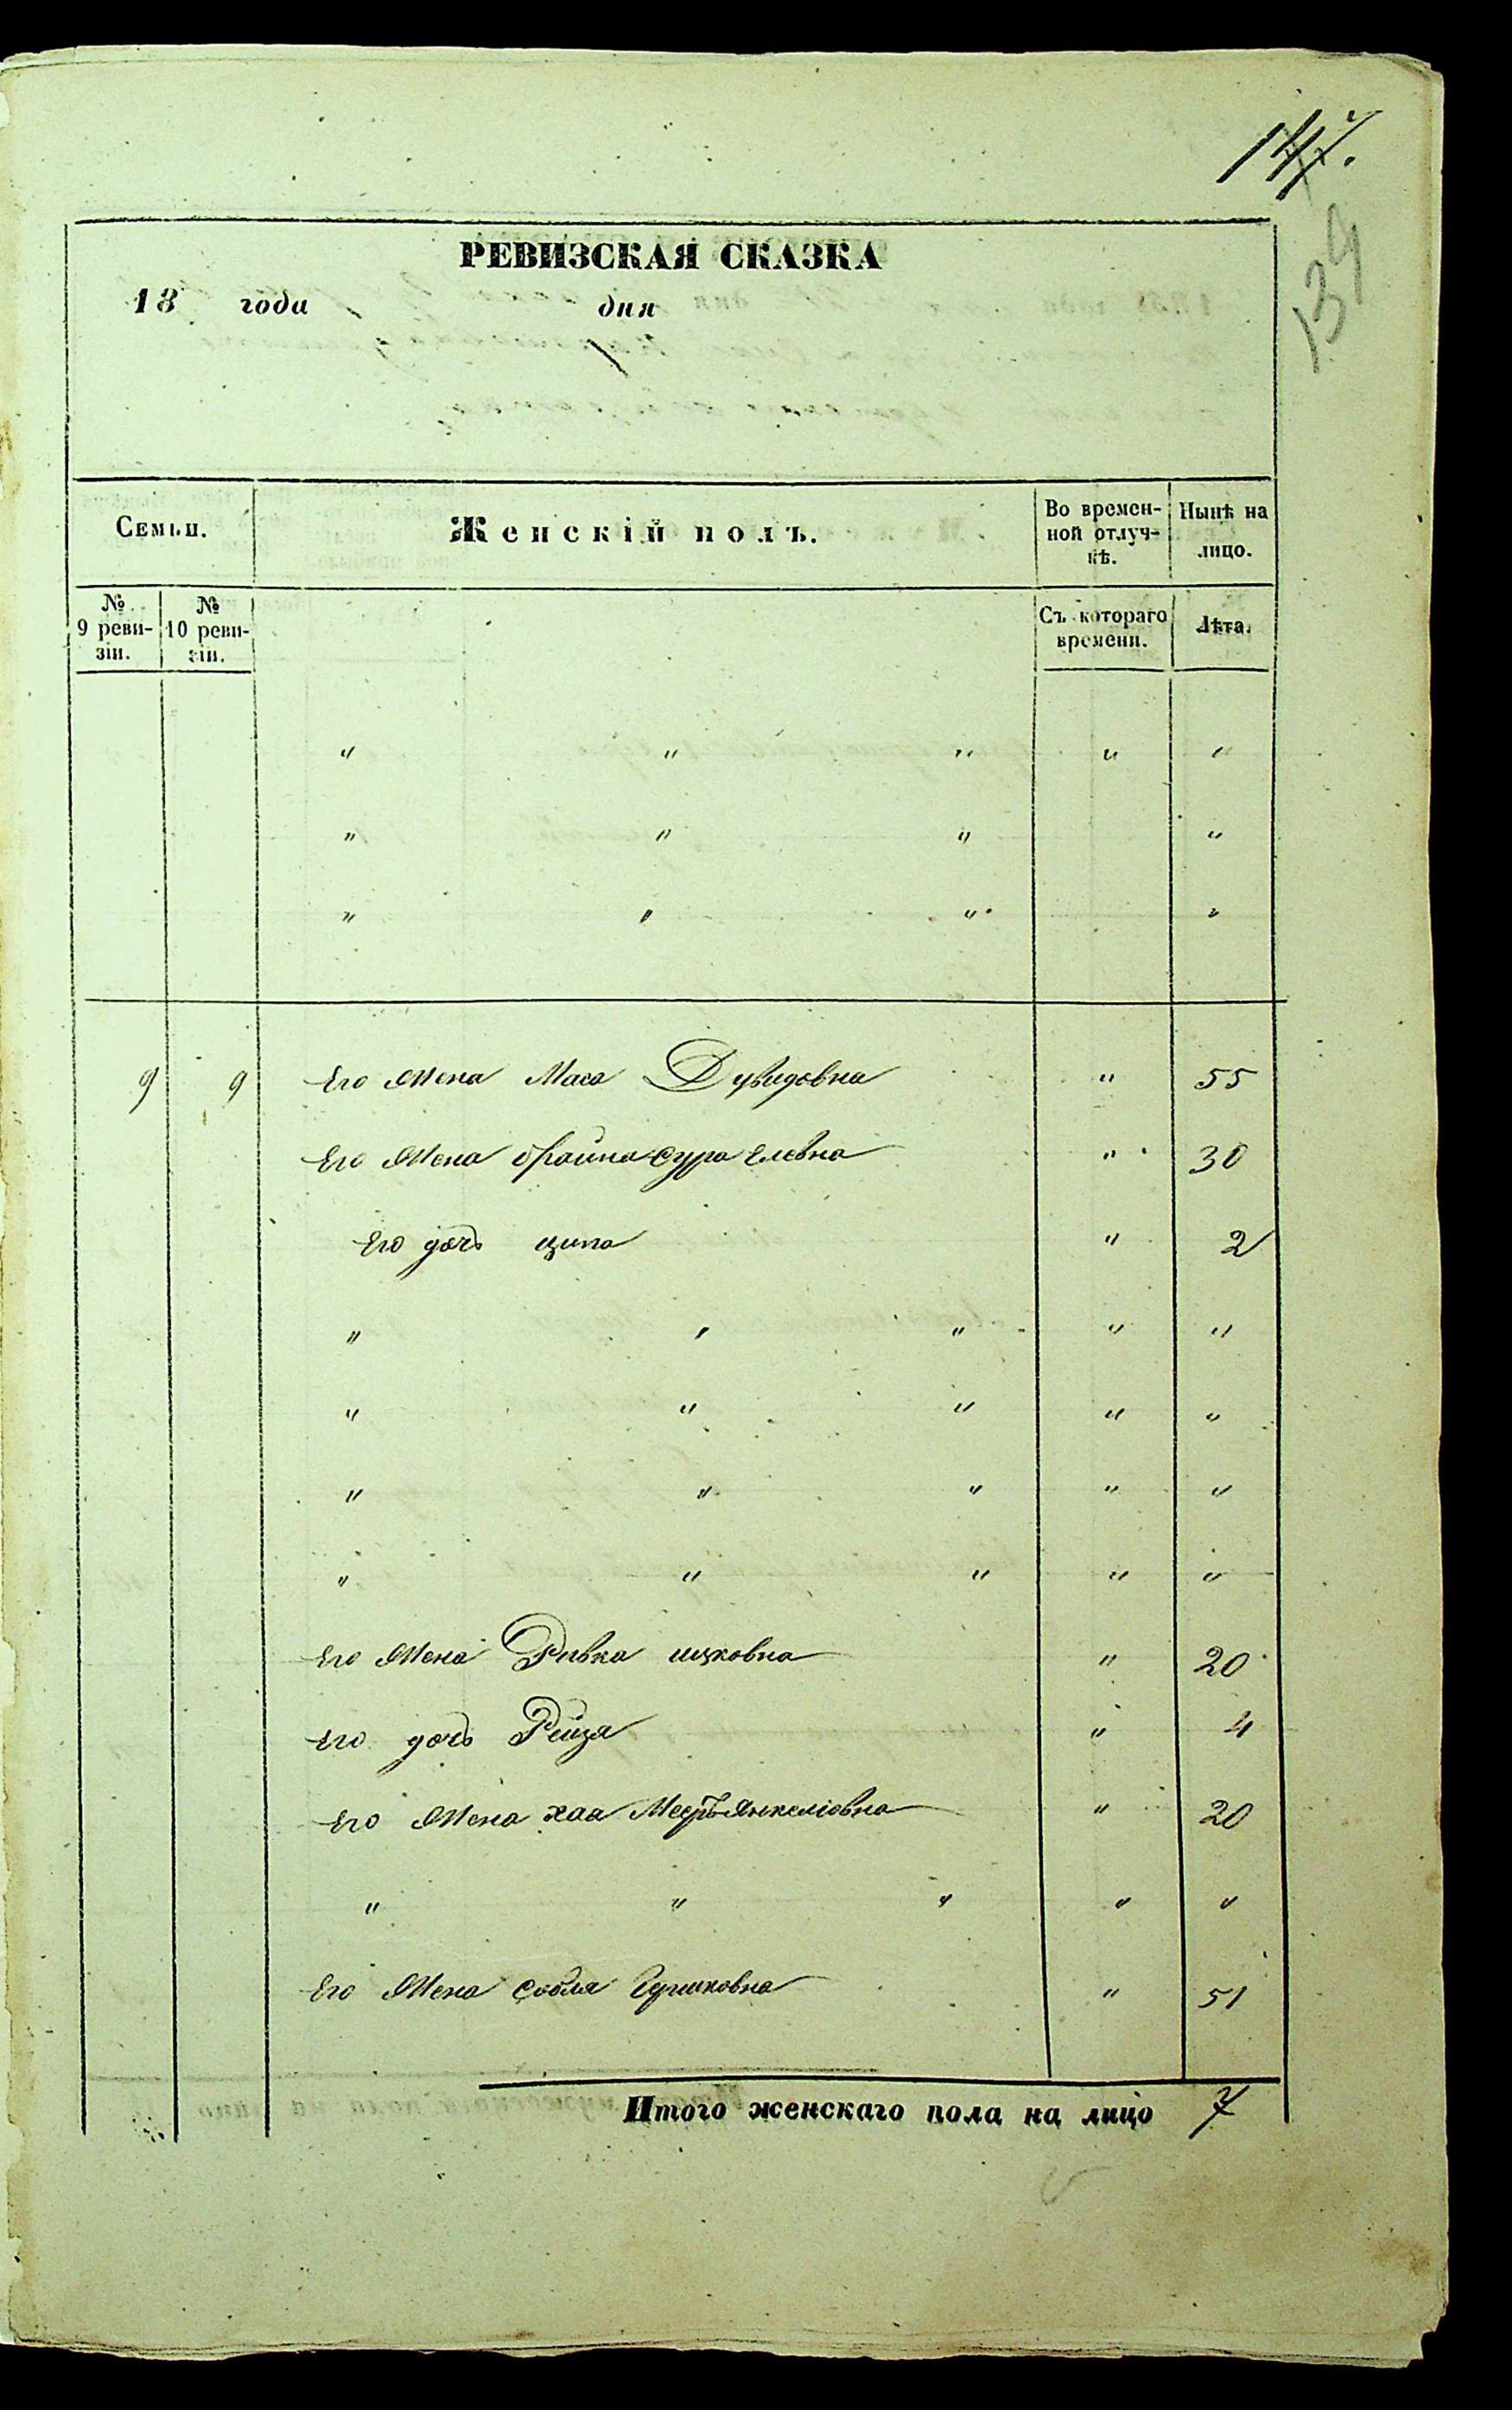 147.
139
РЕВИЗСКАЯ СКАЗКА
18 года дня
Семьи.
Женскій полъ.
Во времен-
ной отлуч-
кѣ.
Нынѣ на
лицо.
№
9 реви-
зіи.
№
10 реви-
зіи.
Съ котораго
времени.
Лѣта.
" " " " "
" " " "
" " " "
9 9 Его Жена Маса Дувидовна " 55
Его Жена Фрайна Сура Елевна " 30
Его дочь Ципа " 2
" " " " "
" " " " "
" " " " "
" " " " "
Его Жена Ривка Ицковна " 20
Его дочь Рейзя " 4
Его Жена хая Янкеліовна " 20
" " " " "
Его Жена Собля " 51
Итого женскаго пола на лицо 7